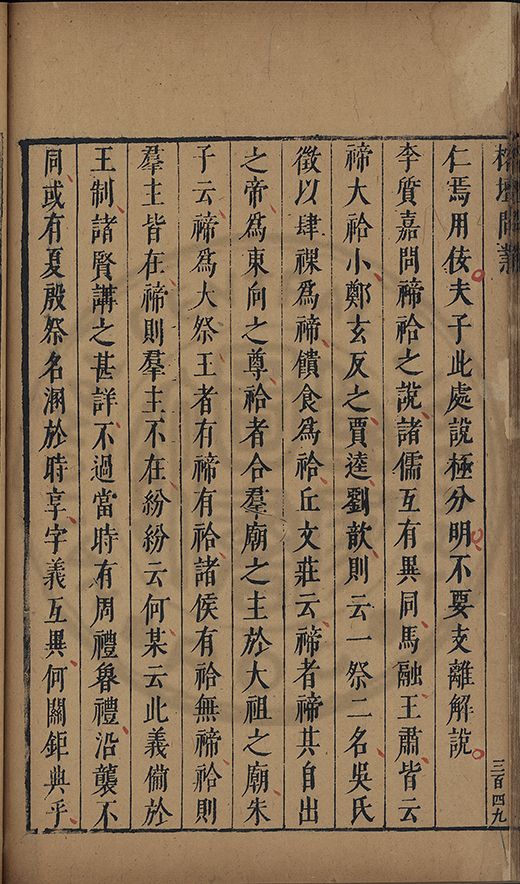 榕壇問業
三百四九
仁焉用佞夫子此處說極分明不要支離解說
李質嘉問禘祫之說諸儒互有異同馬融王肅皆云
禘大祫小鄭玄反之賈逵劉歆則云一祭二名吳氏
徵以肆祼爲禘饋食爲祫丘文莊云禘者禘其自出
之帝爲東向之尊祫者合羣廟之主於大祖之廟朱
子云禘爲大祭王者有禘有祫諸侯有祫無禘祫則
羣主皆在禘則羣主不在紛紛云何某云此義備於
王制諸賢講之甚詳不過當時有周禮魯禮沿襲不
同或有夏殷祭名溷於時享字義互異何關鉅典乎